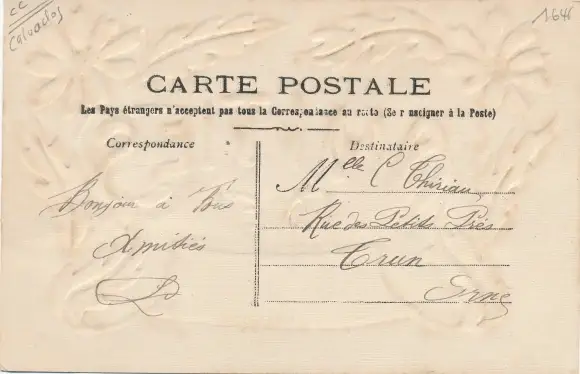 cc
Calvados
CARTE POSTALE
Les Pays étrangers n'acceptent pas tous la Correspondance au recto (Se renseigner à la Poste)
Correspondance
Destinataire
Bonjour à Tous
Amitiés
Mlle C Thiriau
Rue des Petits Prés
Trun
Orne